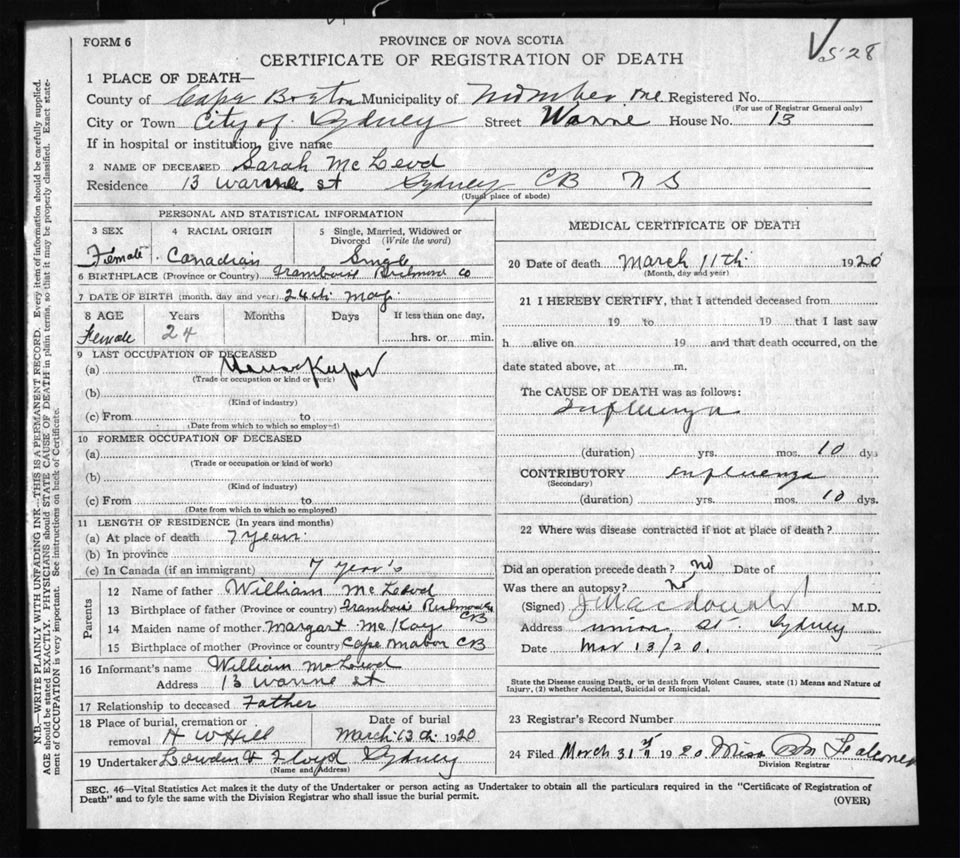 FORM 6
PROVINCE OF NOVA SCOTIA
CERTIFICATE OF REGISTRATION OF DEATH
528
1 PLACE OF DEATH—
County of Cape Breton Municipality of Number one Registered No.
(For use of Registrar General only)
City or Town City of Sydney Street Wanne House No. 13
If in hospital or institution, give name
2 NAME OF DECEASED Sarah McLeod
Residence 13 wanne st Sydney CB N S
(Usual place of abode)
PERSONAL AND STATISTICAL INFORMATION
3 SEX 4 RACIAL ORIGIN 5 Single, Married, Widowed or Divorced (Write the word)
Female Canadian Single
6 BIRTHPLACE (Province or Country) Framboise Richmond Co
7 DATE OF BIRTH (month, day and year) 24th May
8 AGE Years Months Days If less than one day,
Female 24 hrs. or min.
9 LAST OCCUPATION OF DECEASED
(a) House Keeper
(Trade or occupation or kind or work)
(b)
(Kind of industry)
(c) From to
(Date from which to which so employed)
10 FORMER OCCUPATION OF DECEASED
(a)
(Trade or occupation or kind of work)
(b)
(Kind of industry)
(c) From to
(Date from which to which so employed)
11 LENGTH OF RESIDENCE (In years and months)
(a) At place of death 7 years
(b) In province
(c) In Canada (if an immigrant) 7 year's
Parents
12 Name of father William McLeod
13 Birthplace of father (Province or country) Framboise Richmond Co CB
14 Maiden name of mother Margart McKay
15 Birthplace of mother (Province or country) Cape Mabou CB
16 Informant's name William McLeod
Address 13 wanne st
17 Relationship to deceased Father
18 Place of burial, cremation or removal H W Hill
Date of burial March 13th 1920
19 Undertaker Lowden & Floyd Sydney
(Name and Address)
MEDICAL CERTIFICATE OF DEATH
20 Date of death March 11th 1920
(Month, day and year)
21 I HEREBY CERTIFY, that I attended deceased from
19 to 19 that I last saw
h alive on 19 and that death occurred, on the
date stated above, at m.
The CAUSE OF DEATH was as follows:
Influenza
(duration) yrs. mos. 10 dys
CONTRIBUTORY influenza
(Secondary)
(duration) yrs. mos. 10 dys.
22 Where was disease contracted if not at place of death?
Did an operation precede death? no Date of
Was there an autopsy? no
(Signed) J Macdonald M.D.
Address union St Sydney
Date Mar 13/20.
State the Disease causing Death, or in death from Violent Causes, state (1) Means and Nature of
Injury, (2) whether Accidental, Suicidal or Homicidal.
23 Registrar's Record Number
24 Filed March 31st 1920. Miss
Division Registrar
SEC. 46—Vital Statistics Act makes it the duty of the Undertaker or person acting as Undertaker to obtain all the particulars required in the "Certificate of Registration of
Death" and to fyle the same with the Division Registrar who shall issue the burial permit.
(OVER)
N.B.—WRITE PLAINLY WITH UNFADING INK—THIS IS A PERMANENT RECORD. Every item of information should be carefully supplied.
AGE should be stated EXACTLY. PHYSICIANS should STATE CAUSE OF DEATH in plain terms, so that it may be properly classified. Exact state-
ment of OCCUPATION is very important. See instructions on back of Certificate.